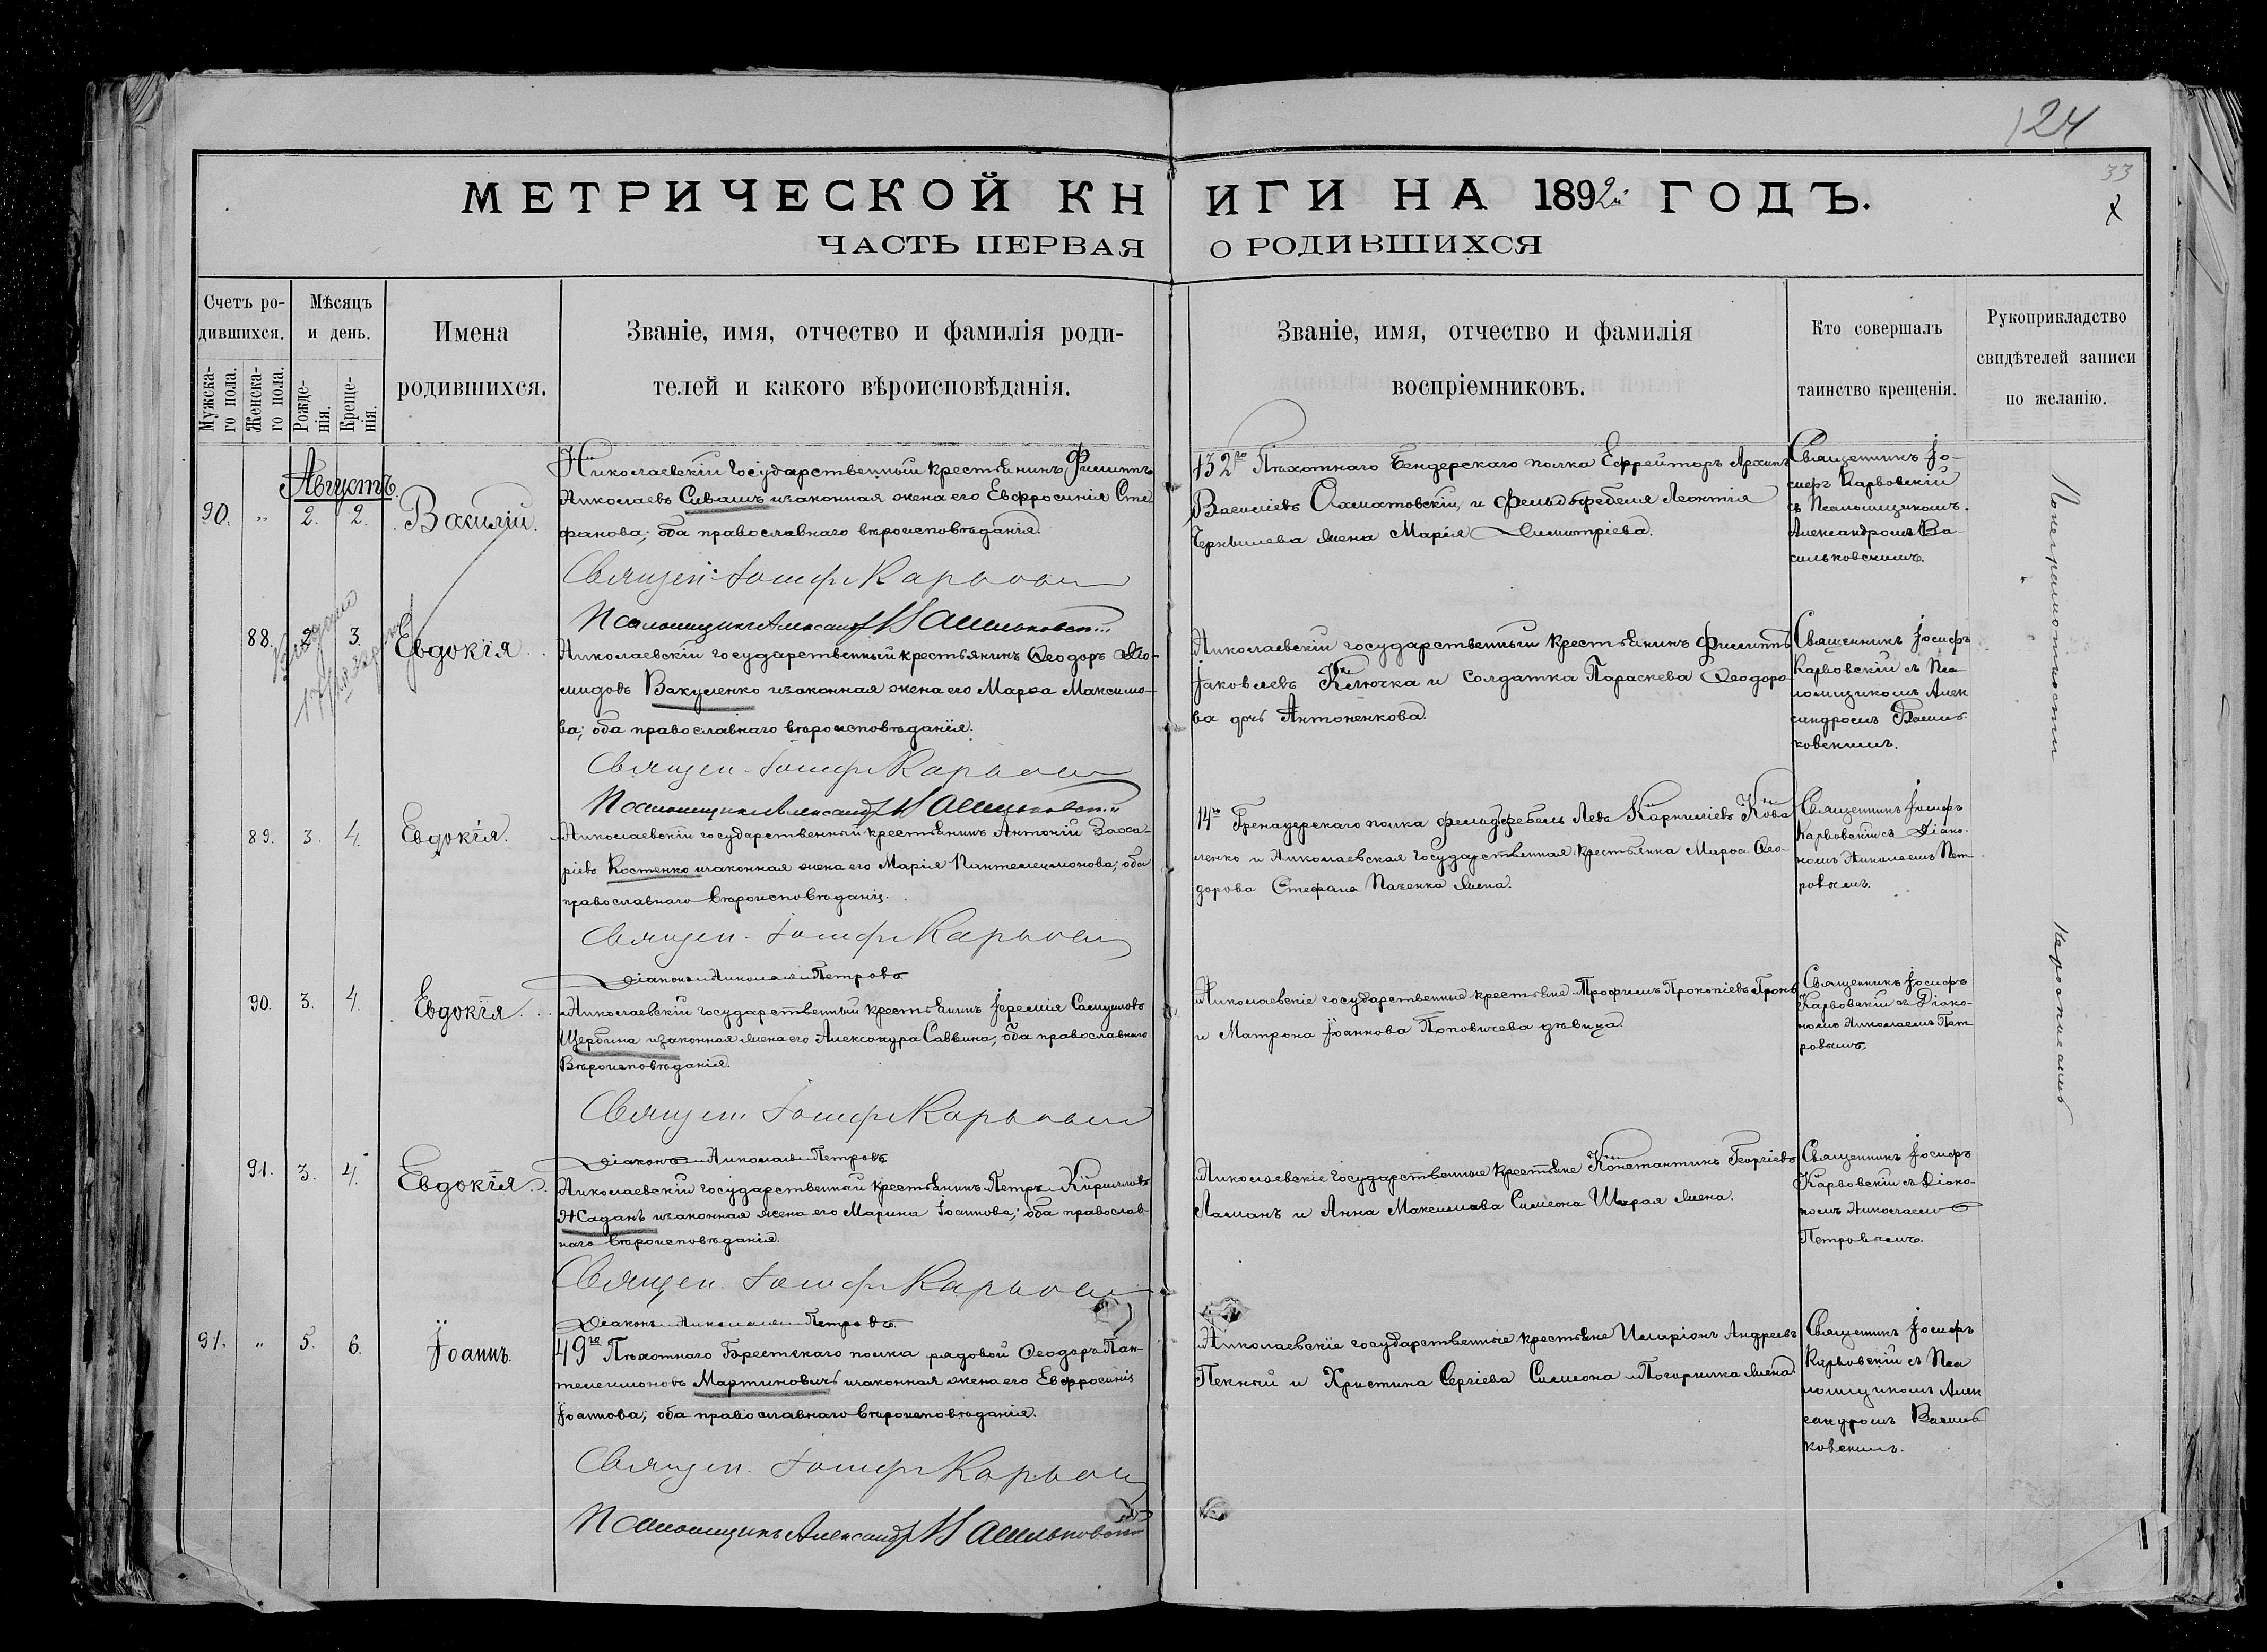 124
33
МЕТРИЧЕСКОЙ КНИГИ НА 1892й ГОДЪ.
ЧАСТЬ ПЕРВАЯ О РОДИВШИХСЯ
Счетъ ро-
дившихся.
Мужска-
го пола.
Женска-
го пола.
Мѣсяцъ
и день.
Рожде-
нія.
Креще-
нія.
Имена
родившихся.
Званіе, имя, отчество и фамилія роди-
телей и какого вѣроисповѣданія.
Званіе, имя, отчество и фамилія
воспріемниковъ.
Кто совершалъ
таинство крещенія.
Рукоприкладство
свидѣтелей записи
по желанію.
Августъ.
90. „ 2. 2. Василій.
Николаевскій государственный крестьянинъ Филиппъ
Николаевъ Сивашъ изаконная жена его Евфросинія Сте-
фанова; оба православнаго вѣроисповѣданія.
Священ: Іосифъ Карвовскі
Псаломщикъ Александръ Васильковскій
132го Пѣхотнаго Бендерскаго полка Ефрейторъ Архипъ
Василіевъ Ахматовскій и Фельдфебеля Леонтія
Чернышева жена Марія Димитріева.
Священникъ Іо-
сифъ Карвовскій
съ Псаломщикомъ
Александромъ Ва-
сильковскимъ.
88. 2. 3. Евдокія.
Николаевскій государственный крестьянинъ Ѳеодоръ Діо-
мидовъ Вакуленко изаконная жена его Марѳа Максимо-
ва; оба православнаго вѣроисповѣданія.
Священ. Іосифъ Карвовскі
Псаломщикъ Александръ Васильковскій
Николаевскій государственный крестьянинъ Филиппъ
Іаковлевъ Ключка и солдатка Параскева Ѳеодоро-
ва дочь Антоненкова.
Священникъ Іосифъ
Карвовскій съ Пса-
ломщикомъ Алек
сандромъ Василь-
ковскимъ.
89. 3. 4. Евдокія.
Николаевскій государственный крестьянинъ Антоній Заха-
ріевъ Костенко изаконная жена его Марія Пантелеимонова; оба
православнаго вѣроисповѣданія.
Священ. Іосифъ Карвовскі
Діаконъ Николай Петровъ
14го Гренадерскаго полка фельдфебель Левъ Корниліевъ Кова-
ленко и Николаевская государственная крестьянка Марѳа Ѳео-
дорова Стефана Паченка жена.
Священникъ Іосифъ
Карвовскій съ Діако-
номъ Николаемъ Пет-
ровымъ.
90. 3. 4. Евдокія.
Николаевскій государственный крестьянинъ Іеремія Самуиловъ
Щербина изаконная жена его Александра Саввина; оба православнаго
Вѣроисповѣданія.
Священ Іосифъ Карвовскі
Діаконъ Николай Петровъ
Николаевскіе государственные крестьяне Трофимъ Прокопіевъ
и Матрона Іоаннова Поповичева дѣвица.
Священникъ Іосифъ
Карвовскій съ Діако-
номъ Николаемъ Пет
ровымъ.
91. 3. 4. Евдокія.
Николаевскій государственный крестьянинъ Петръ Кирилловъ
Жаданъ изаконная жена его Марина Іоаннова; оба православ-
наго вѣроисповѣданія.
Священ. Іосифъ Карвовскі
Діаконъ Николай Петровъ.
Николаевскіе государственные крестьяне Константинъ Георгіевъ
Ламанъ и Анна Максимова Симеона Шарая жена.
Священникъ Іосифъ
Карвовскій съ Діако-
номъ Николаемъ
Петровымъ.
91. „ 5. 6. Іоаннъ.
49го Пѣхотнаго Брестскаго полка рядовой Ѳеодоръ Пан-
телеимоновъ Мартиновичъ изаконная жена его Евфросинія
Іоаннова; оба православнаго вѣроисповѣданія.
Священ. Іосифъ Карвовскі
Псаломщикъ Александръ Васильковскій
Николаевскіе государственные крестьяне Иларіонъ Андреевъ
Пекный и Христина Сергіева Симеона Погорилка жена.
Священникъ Іосифъ
Карвовскій съ Пса
ломщикомъ Алек
сандромъ Василь
ковскимъ.
По неграмотности не росписались